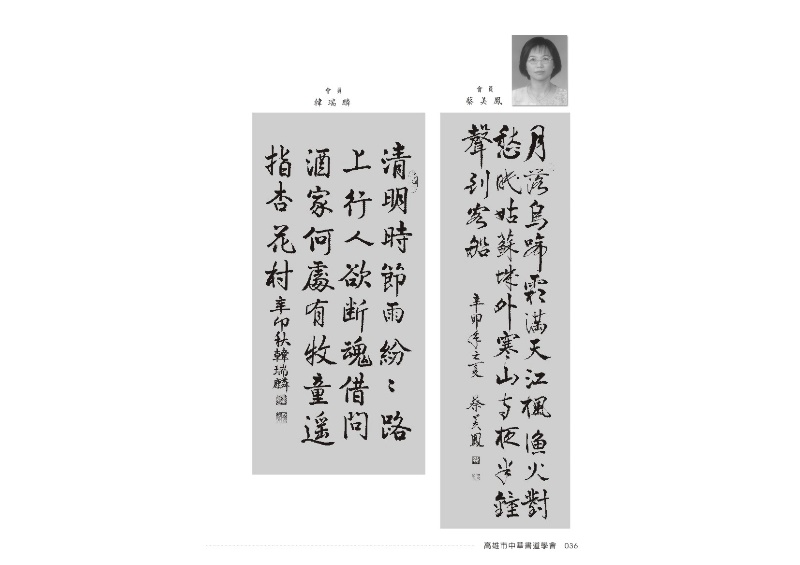 會員
蔡美鳳
月落烏啼霜滿天江楓漁火對
愁眠姑蘇城外寒山寺夜半鐘
聲到客船
辛卯年之夏 蔡美鳳
會員
韓瑞麟
清明時節雨紛〻路
上行人欲断魂借問
酒家何處有牧童遥
指杏花村
辛卯秋韓瑞麟
高雄市中華書道學會 036